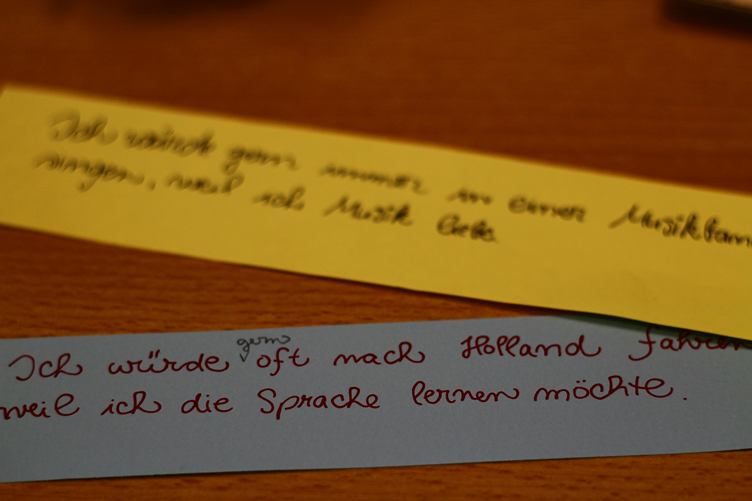 Ich würde gern immer in einer Musikban
singen, weil ich Musik liebe.
gern
Ich würde oft nach Holland fahren
weil ich die Sprache lernen möchte.